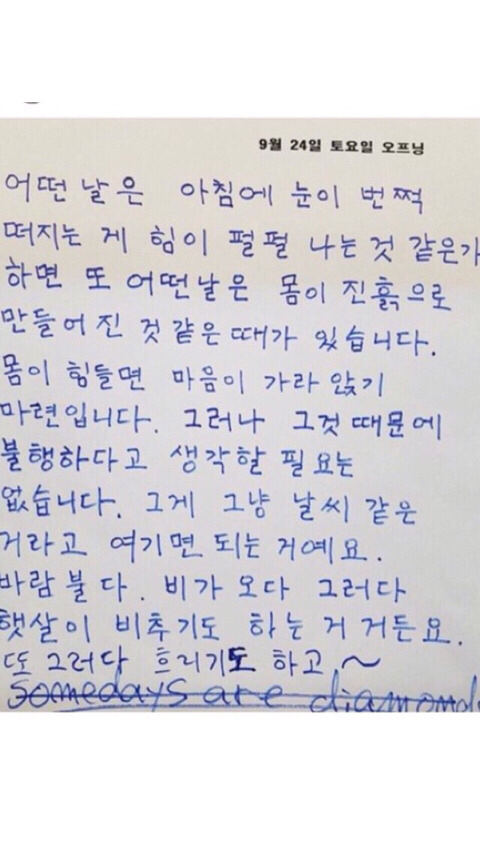 9월 24일 토요일 오프닝
어떤 날은 아침에 눈이 번쩍
떠지는 게 힘이 펄펄 나는 것 같은가
하면 또 어떤날은 몸이 진흙으로
만들어 진 것 같은 때가 있습니다.
몸이 힘들면 마음이 가라 앉기
마련입니다. 그러나 그것 때문에
불행하다고 생각할 필요는
없습니다. 그게 그냥 날씨 같은
거라고 여기면 되는 거예요.
바람 불다. 비가 오다 그러다
햇살이 비추기도 하는 거 거든요.
또 그러다 흐리기도 하고.~
Somedays are diamonds